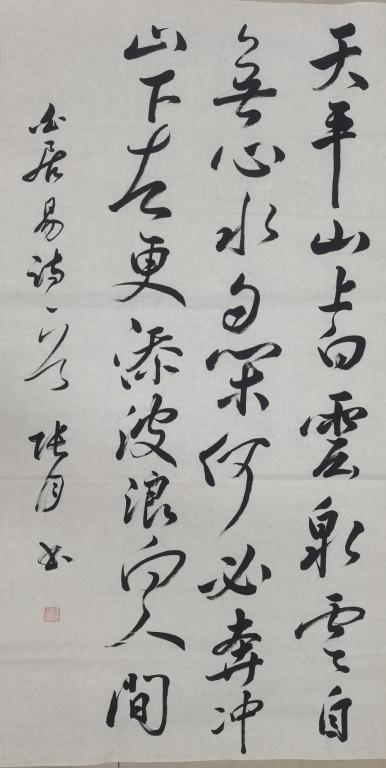 天平山上白雲泉雲自
無心水自閑何必奔冲
山下去更添波浪向人間
白居易詩一首 張月書